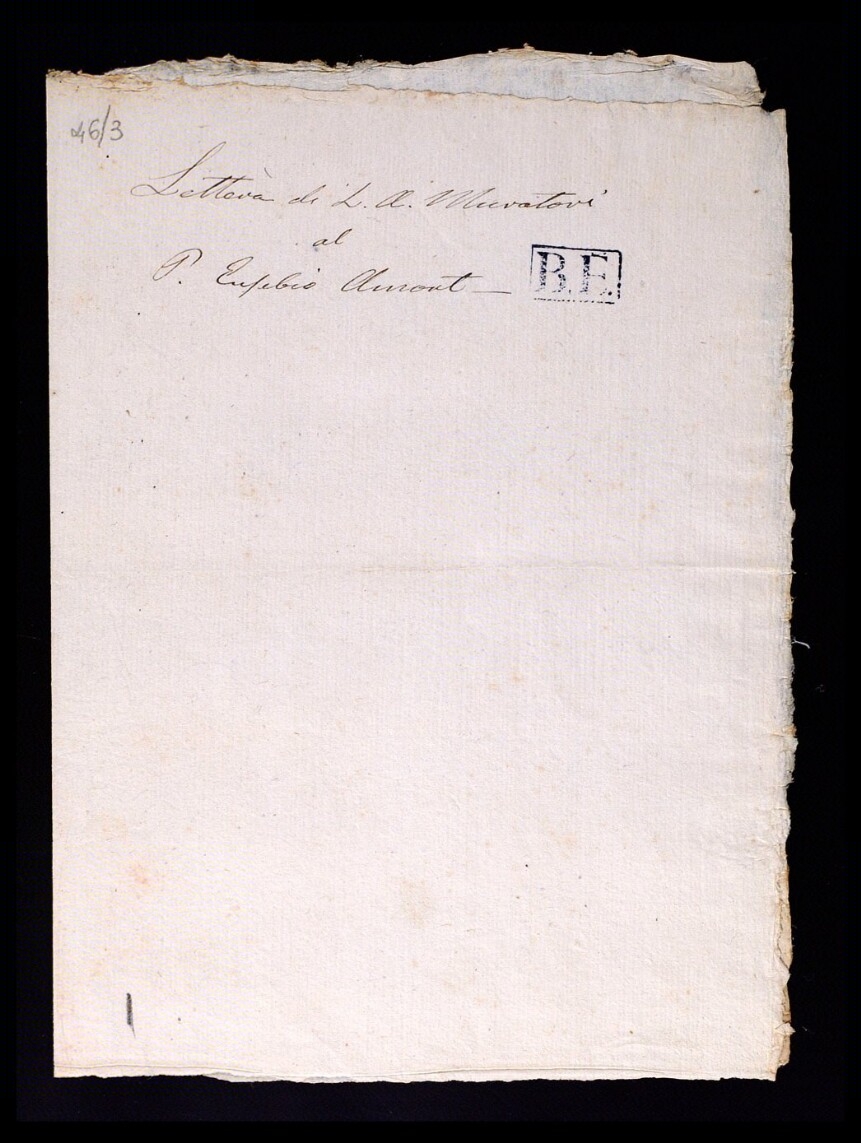 46/3
Lettera di L. A. Muratori
al
P. Eusebio Amort —
B.E.